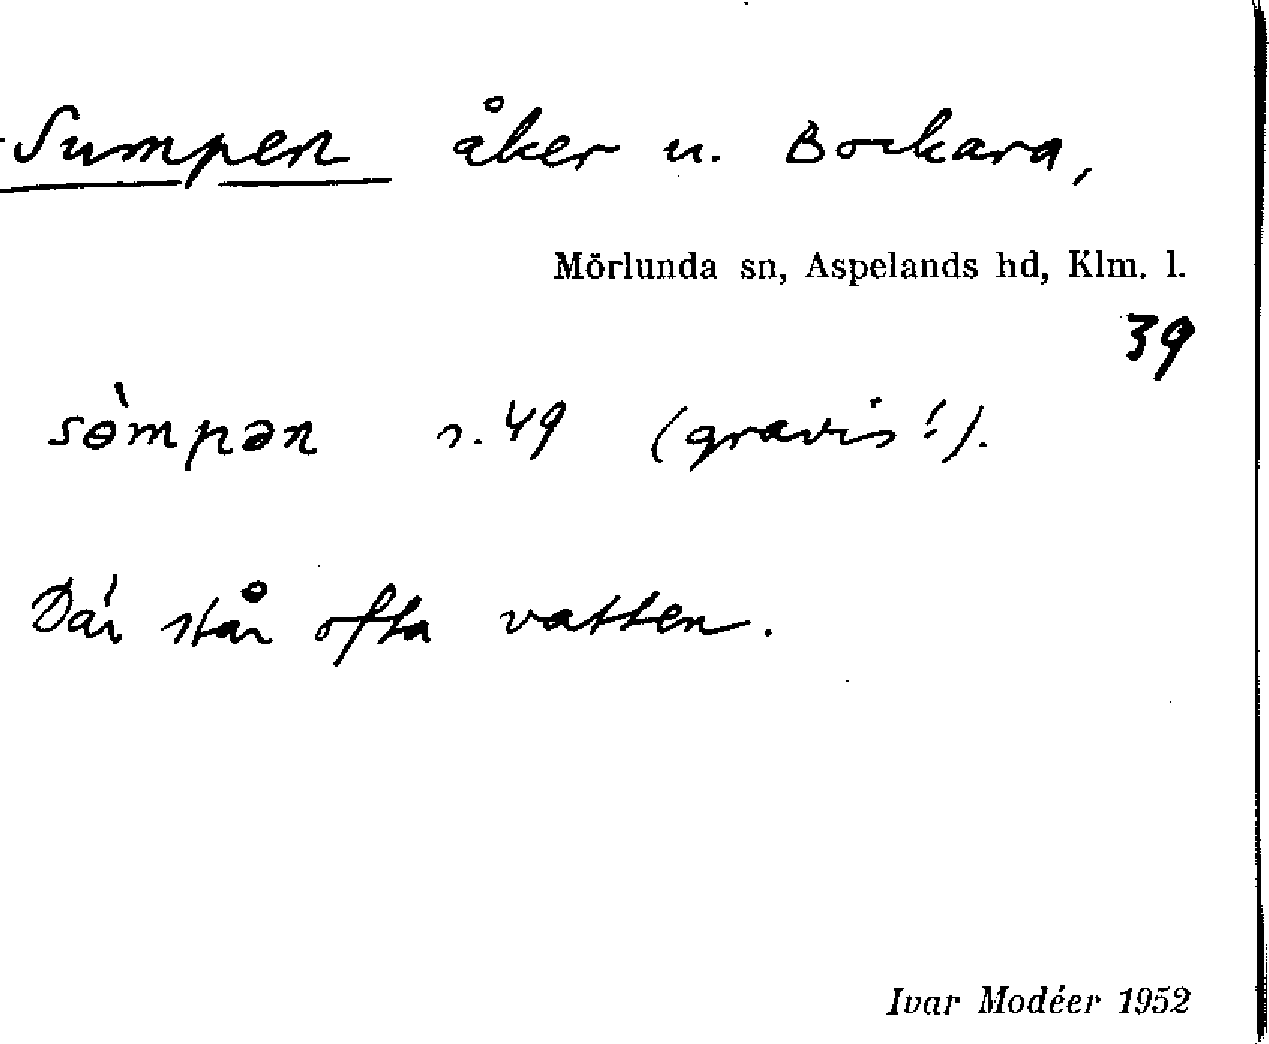 Sumpen åker u. Bockara,
Mörlunda sn, Aspelands hd, Klm. l.
39
sɵ̀mpən s. 49 (gravis!).
Där står ofta vatten.
Ivar Modéer 1952